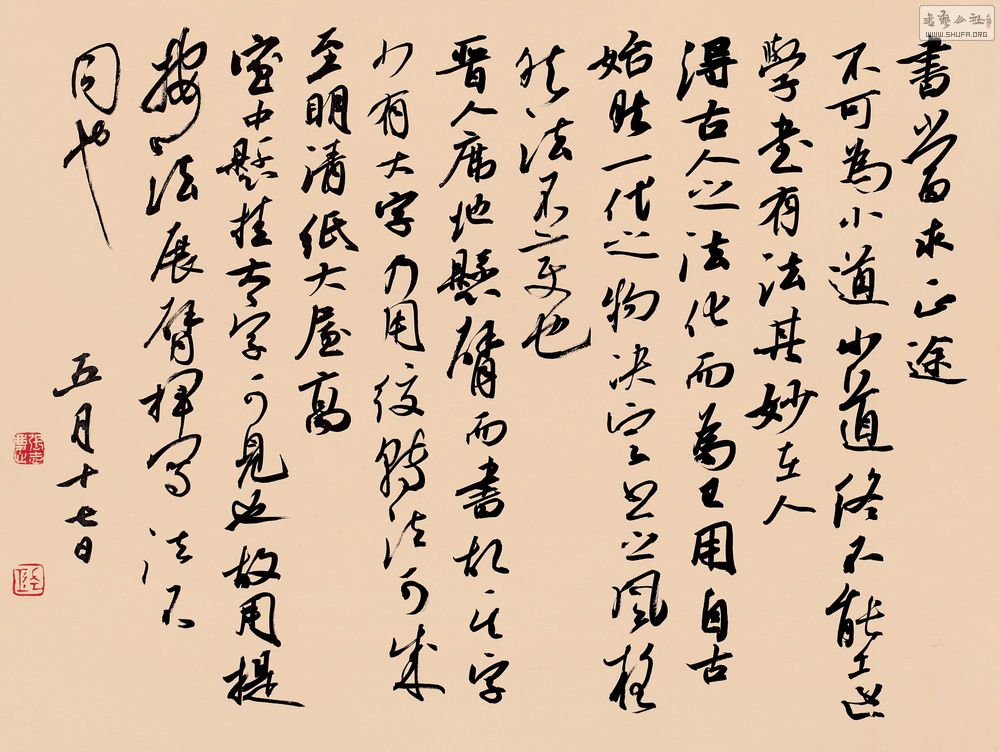 書當求正途
不可為小道小道終不能
學書有法其妙在人
得古人之法化而為己用自古
始一代之物决定之風格
然法不變也
晉人席地懸臂而書故其字
小有大字乃用絞轉法可成
至明清紙大屋高
室中懸挂大字可見也故用提
按法展臂揮寫法不
同也
五月十七日
書藝公社
WWW.SHUFA.ORG